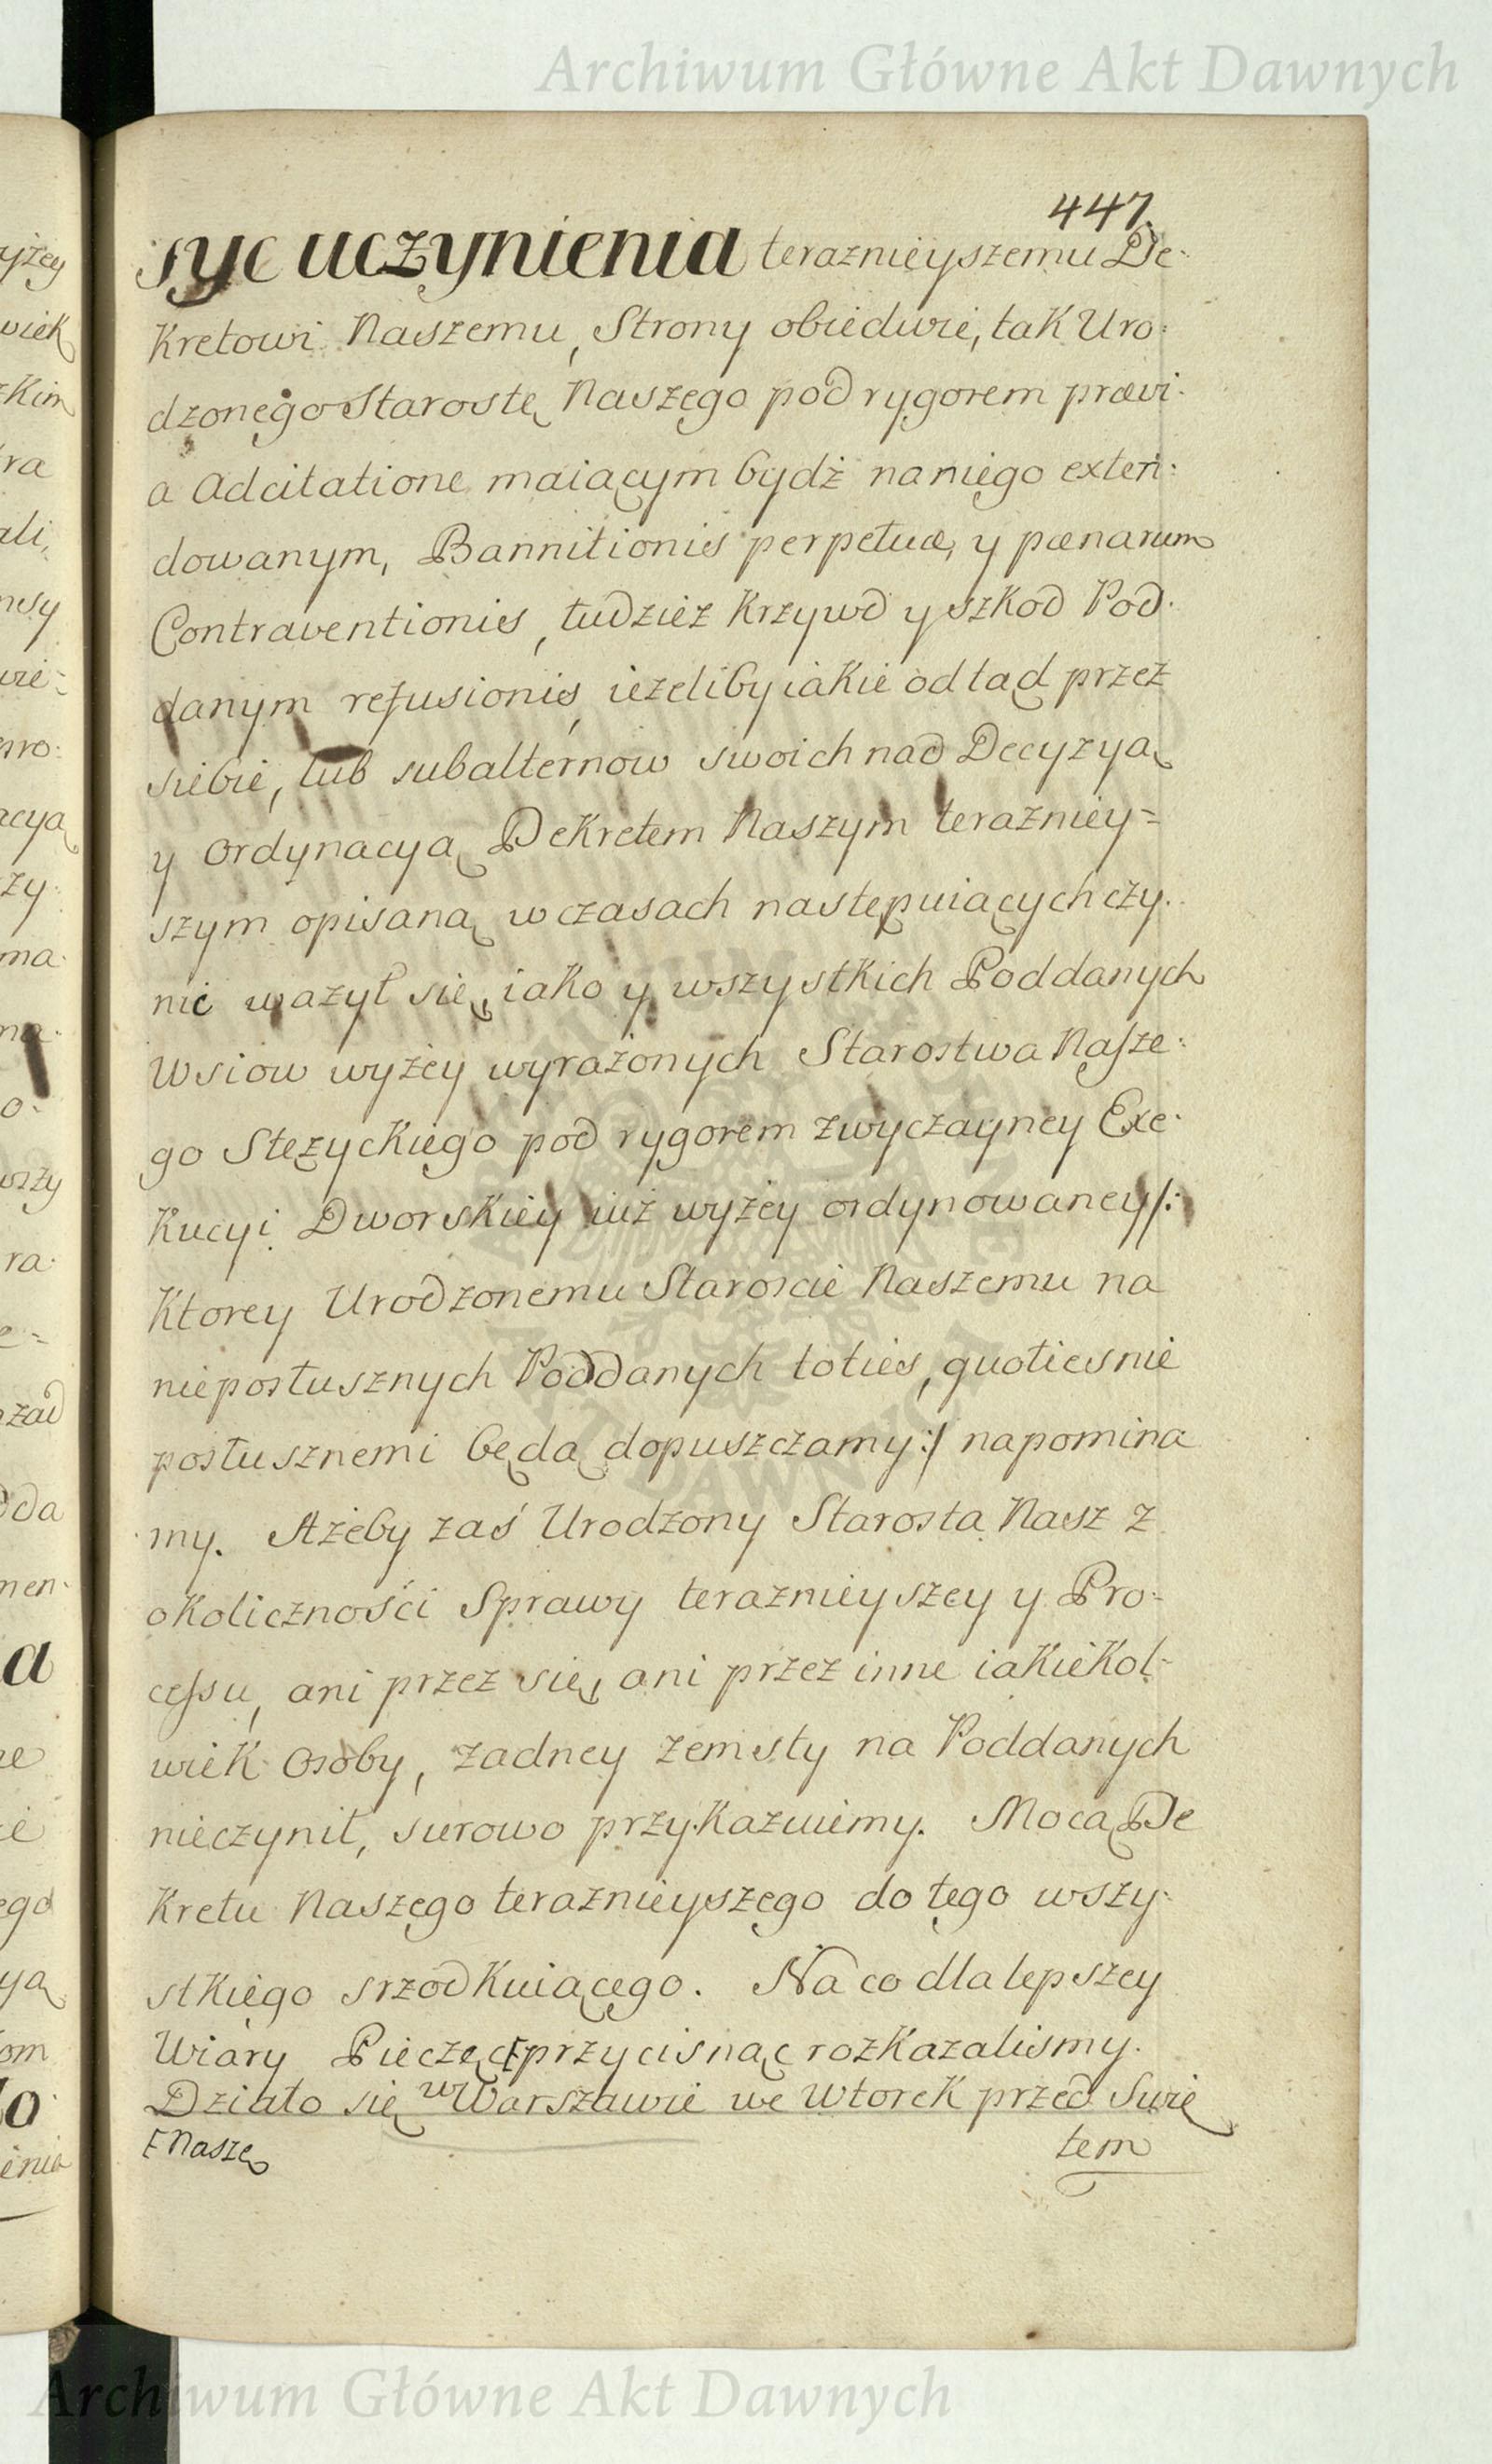 Archiwum Główne Akt Dawnych
447.
syc uczynienia teraznieyszemu De-
kretowi Naszemu, Strony obiedwie, tak Uro-
dzonego Starostę Naszego pod rygorem prævi-
a Adcitatione maiącym bydź na niego exten-
dowanym, Bannitionis perpetuæ, y pænarum
Contraventionis, tudziez Krzywd y szkod Pod-
danym refusionis, ieżeliby iakie odtąd przez
siebie, lub subalternow swoich nad Decyzyą
y Ordynacyą Dekretem Naszym teraźniey=
szym opisaną w czasach następuiących czy-
nić ważył się, iako y wszystkich Poddanych
Wsiow wyżey wyrażonych Starostwa Nasze-
go Stężyckiego pod rygorem zwyczayney Exe-
kucyi Dworskiey iuż wyżey ordynowaney/:
Ktorey Urodzonemu Staroscie Naszemu na
nieposłusznych Poddanych toties, quoties nie
posłusznemi będą dopuszczamy:/ napomina
my. Ażeby zaś Urodzony Starosta Nasz z
okoliczności Sprawy terazniey szey y Pro-
cessu, ani przez się, ani przez inne iakiekol-
wiek Osoby, żadney zemsty na Poddanych
nieczynił, surowo przykazuiemy. Mocą De
kretu Naszego teraznieyszego do tego wszy-
stkiego srzodkuiącego. Na co dla lepszey
Wiary Pieczęć [przycisnąc rozkazalismy.
Działo się w Warszawie we Wtorek przed Swię
[Naszę
tem
ARCHIWUM GŁÓWNE AKT DAWNYCH
Archiwum Główne Akt Dawnych